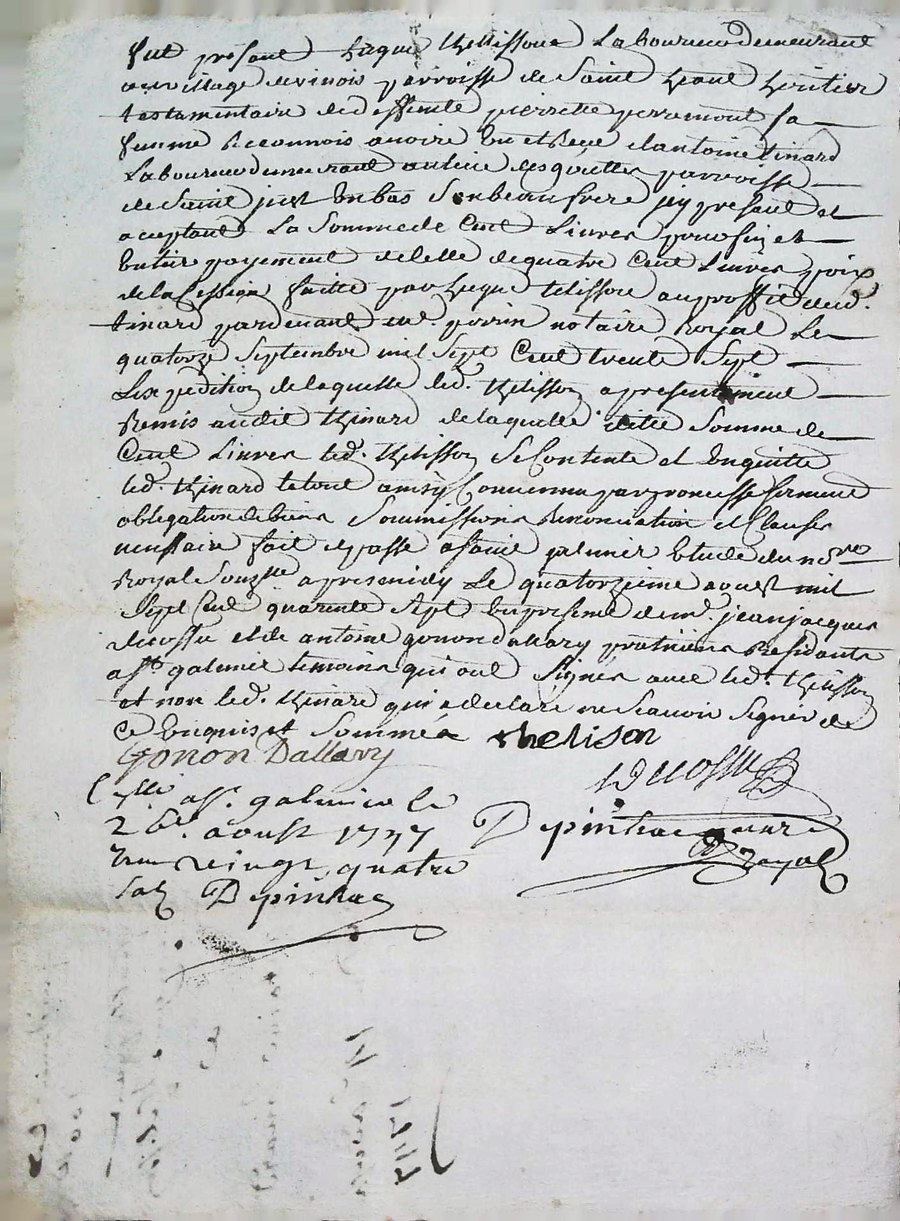 fut present Laboureur demeurant
au village de vinois parroisse de Saint heritier
testamentaire de deffunte pierrette perremont sa
femme Reconnois avoire Eu et Reçu d'antoine tinard
Laboureur demeurant au lieu des parroisse
de Saint just Enbas Sonbeaufrere icy presant et
aceptant La Somme de Cent Livres pour fin et
Entier payement de Celle de quatre Cent Livres prix
de la Cession faitte par telissone au proffit dud.
tinard pardevant me. perrin notaire Royal Le
quatorze Septembre mil Sept Cent trente Sept
Lexpedition de laquelle led. thelisson a presentement
Remis audit thinard de laquelle ditte Somme de
Cent Livres led. thelisson Se Contente et Enquitte
led. thinard le tout ainsy Convenu par promesse Serment
obligation de biens Soumissions Renonciation et Clauses
nessaire fait et passé a Saint galmier Etude du nore
Royal Souzsé a presenidy Le quatorzieme aoust mil
Sept Cent quarente Sept En presence de me. jean jacques
ducossu et de antoine gonon dallary praticiens Residants
a St. galmier temoins qui ont Signés avec led. thelisson
et non led. thinard qui a declaré ne Scavoir Signer de
Ce Enquis et Sommé thelison
Gonon Dallary
Cllé a St. galmier le
26e. aoust 1747 Depinhac
Reçu vingt quatre Royal
Sols Depinhac